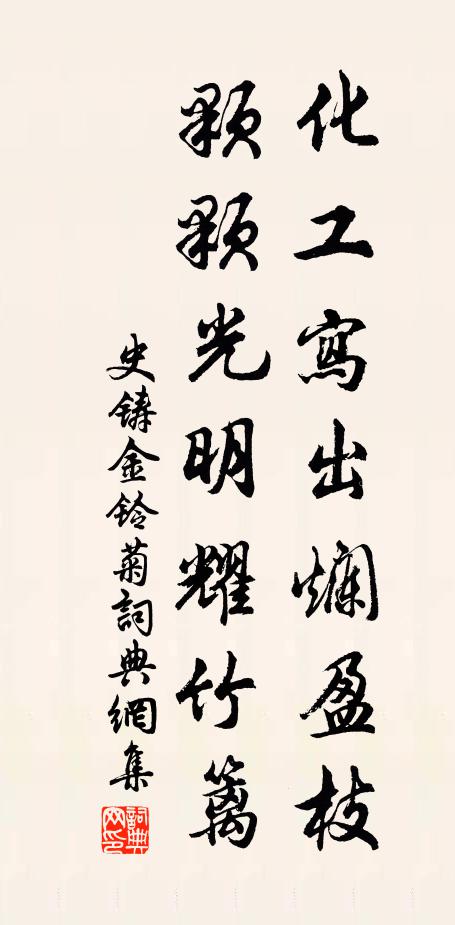 化工寫出爛盈枝
顆顆光明耀竹籬
史鑄金鈴菊詞典網集
詞典网印